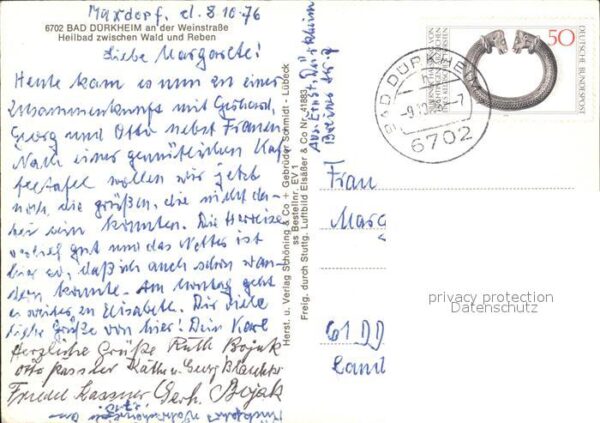 Maxdorf, d. 8.10.76
6702 BAD DÜRKHEIM an der Weinstraße
Heilbad zwischen Wald und Reben
Liebe Margarete!
Heute kam es nun zu einer
Zusammenkunft mit Gerhard,
Georg und Otto nebst Frauen.
Nach einer gemütlichen Kaf
feetafel wollen wir jetzt
noch die grüßen, die nicht da-
bei sein konnten. Die Herreise
verlief gut und das Wetter ist
hier so, daß ich auch schon wan-
dern konnte. Am Montag geht
es weiter zu Elisabeth. Dir viele
liebe Grüße von hier! Dein Karl
Herzliche Grüße Ruth Bojak
Otto Kassner Käthe u. Georg
Friedel Kassner Gerh. Bojak
Herst. u. Verlag Schöning & Co + Gebrüder Schmidt - Lübeck
ss Bestellnr. EV 1
Freig. durch Stuttg. Luftbild Elsäßer & Co Nr. 41883
Abs. Ernst, Dürkheim
DEUTSCHE BUNDESPOST
50
BAD DÜRKHEIM
-9.10.
-7
6702
Frau
Marg
61 DD
Land
privacy protection
Datenschutz